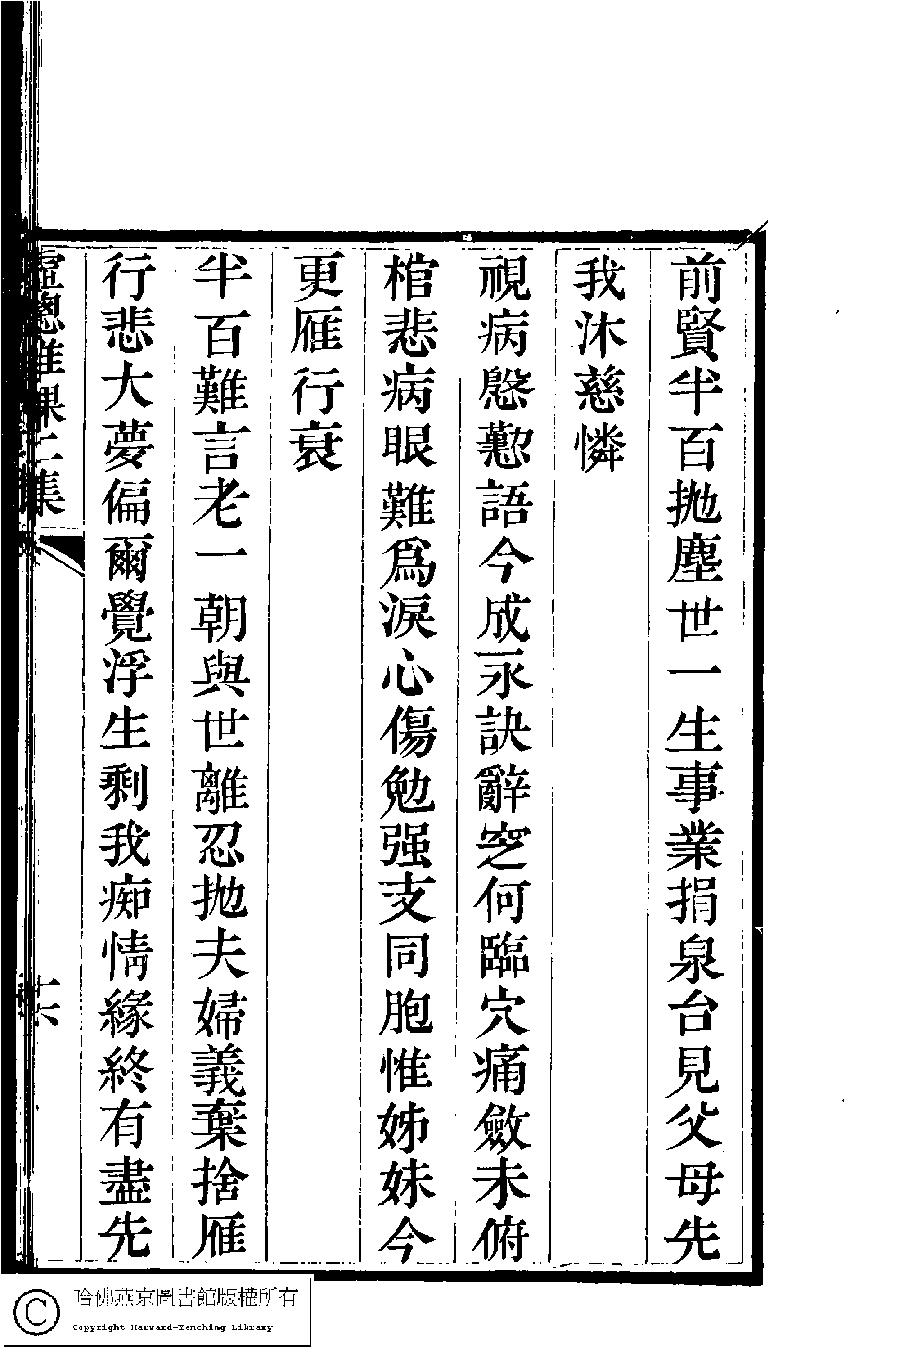 前賢半百拋塵世一生事業捐泉台見父母先
我沐慈憐
視病慇懃語今成永訣辭空何臨穴痛斂未俯
棺悲病眼難爲淚心傷勉强支同胞惟姊妹今
更雁行衰
半百難言老一朝與世離忍拋夫婦義棄捨雁
行悲大夢偏爾覺浮生剩我痴情緣終有盡先
課二集
哈佛燕京圖書館版權所有
Copyright Harvard-Yenching Library